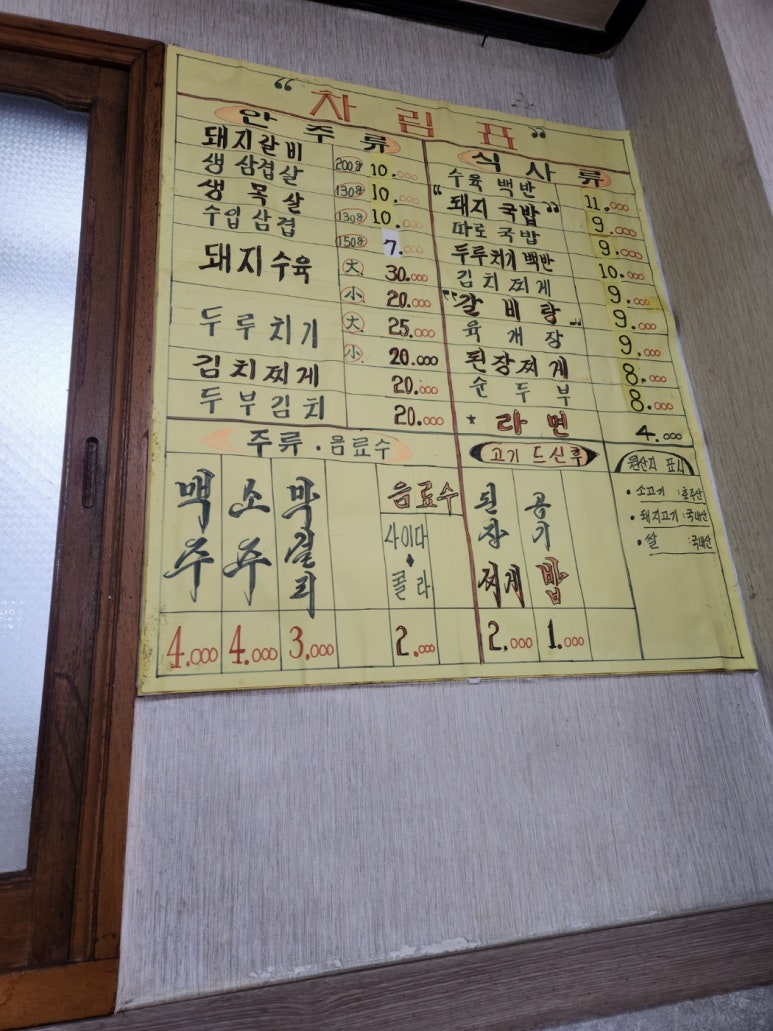 “차림표”
안주류
돼지갈비 200g 10.000
생삼겹살 130g 10.000
생목살 130g 10.000
수입삼겹 150g 7.000
돼지수육 大 30.000
小 20.000
두루치기 大 25.000
小 20.000
김치찌게 20.000
두부김치 20.000
식사류
수육백반 11.000
“돼지국밥” 9.000
따로국밥 9.000
두루치기백반 10.000
김치찌게 9.000
“갈비탕” 9.000
육개장 9.000
된장찌게 8.000
순두부 8.000
* 라면 4.000
주류 . 음료수
맥주 4.000
소주 4.000
막걸리 3.000
음료수
사이다 ◆ 콜라 2.000
고기 드신후
된장찌게 2.000
공기밥 1.000
원산지 표시
• 소고기 : 호주산
• 돼지고기 : 국내산
• 쌀 : 국내산